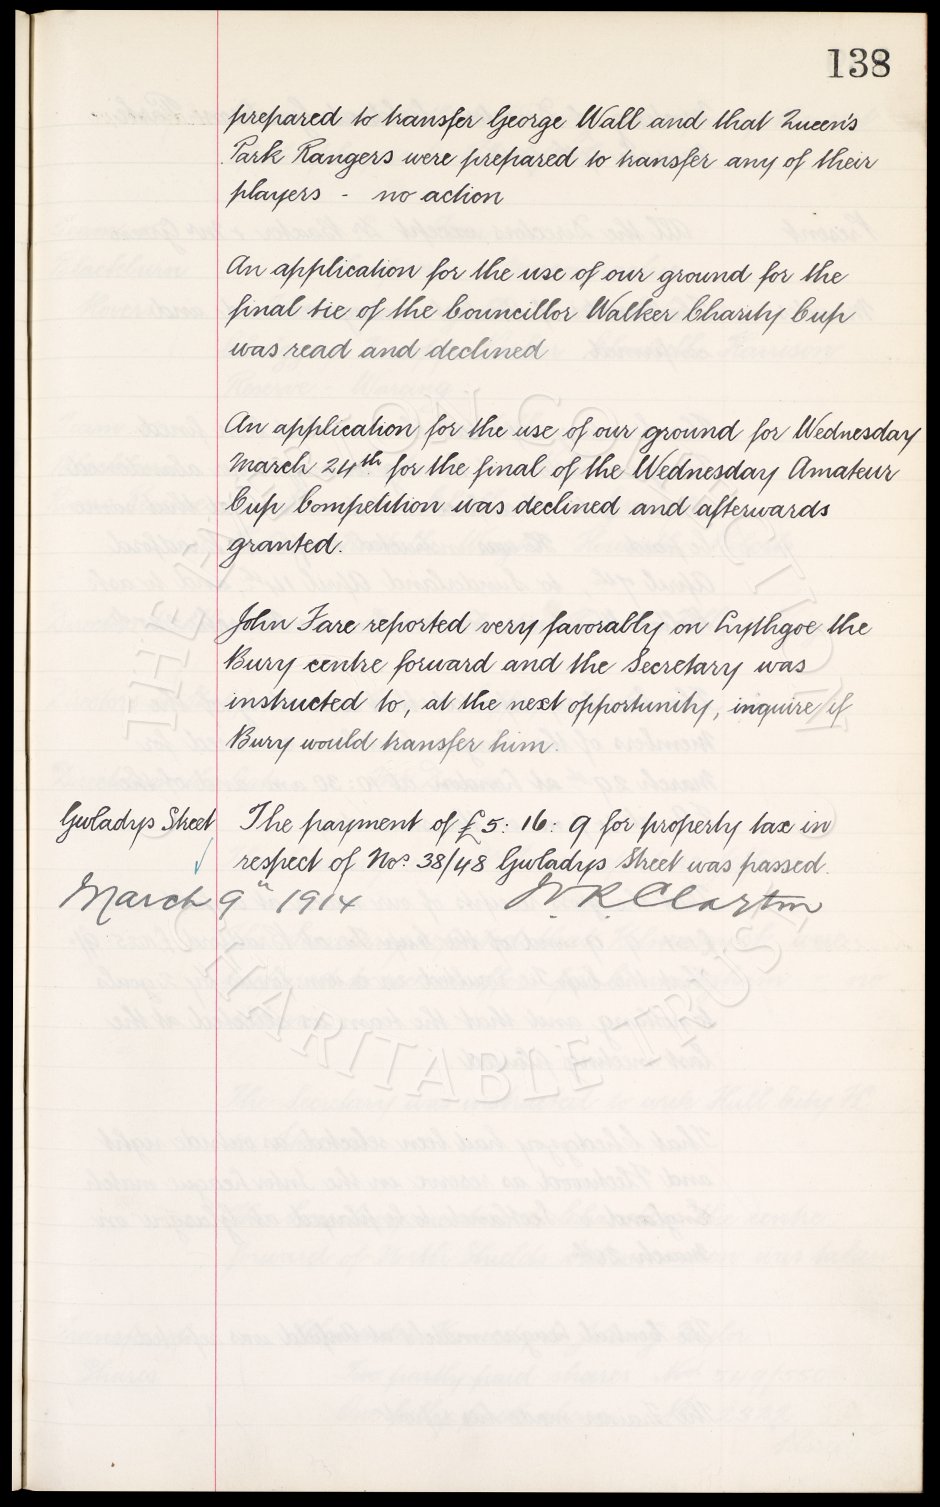 138
prepared to transfer George Wall and that Queen's
Park Rangers were prepared to transfer any of their
players - no action
An application for the use of our ground for the
final tie of the Councillor Walker Charity Cup
was read and declined
An application for the use of our ground for Wednesday
March 24th for the final of the Wednesday Amateur
Cup Competition was declined and afterwards
granted.
John Fare reported very favorably on Lythgoe the
Bury centre forward and the Secretary was
instructed to, at the next opportunity, inquire if
Bury would transfer him.
Gwladys Street
The payment of £5: 16: 9 for property tax in
respect of Nos 38/48 Gwladys Street was passed.
March 9th 1914
W. R. Clayton
THE EVERTON COLLECTION
CHARITABLE TRUST